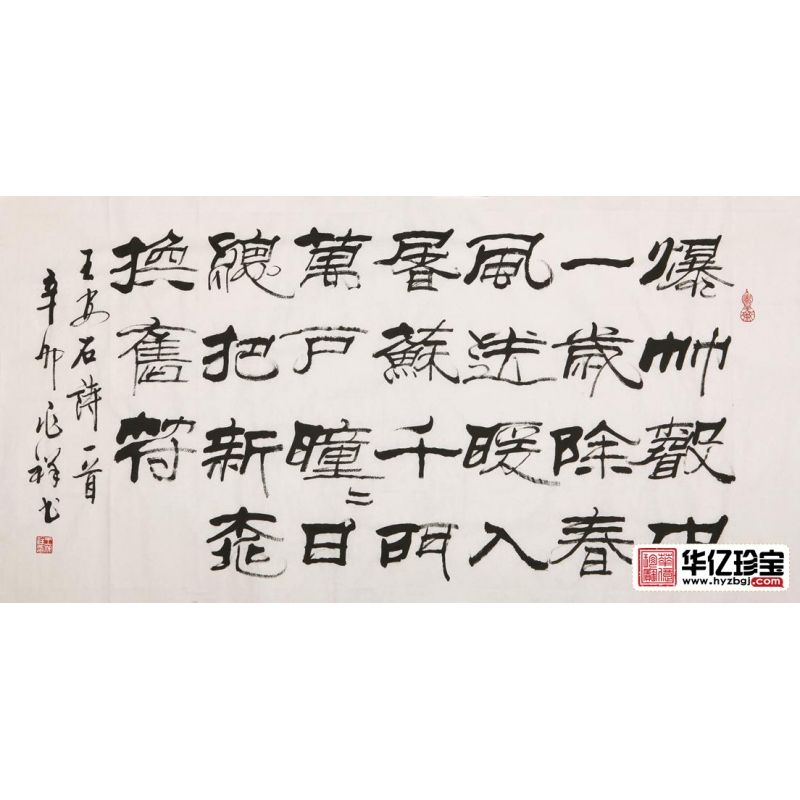 爆竹聲中
一歲除春
風送暖入
屠蘇千門
萬戶曈〻日
總把新桃
換舊符
王安石詩一首
辛卯兆祥书
华亿珍宝
www.hyzbgj.com